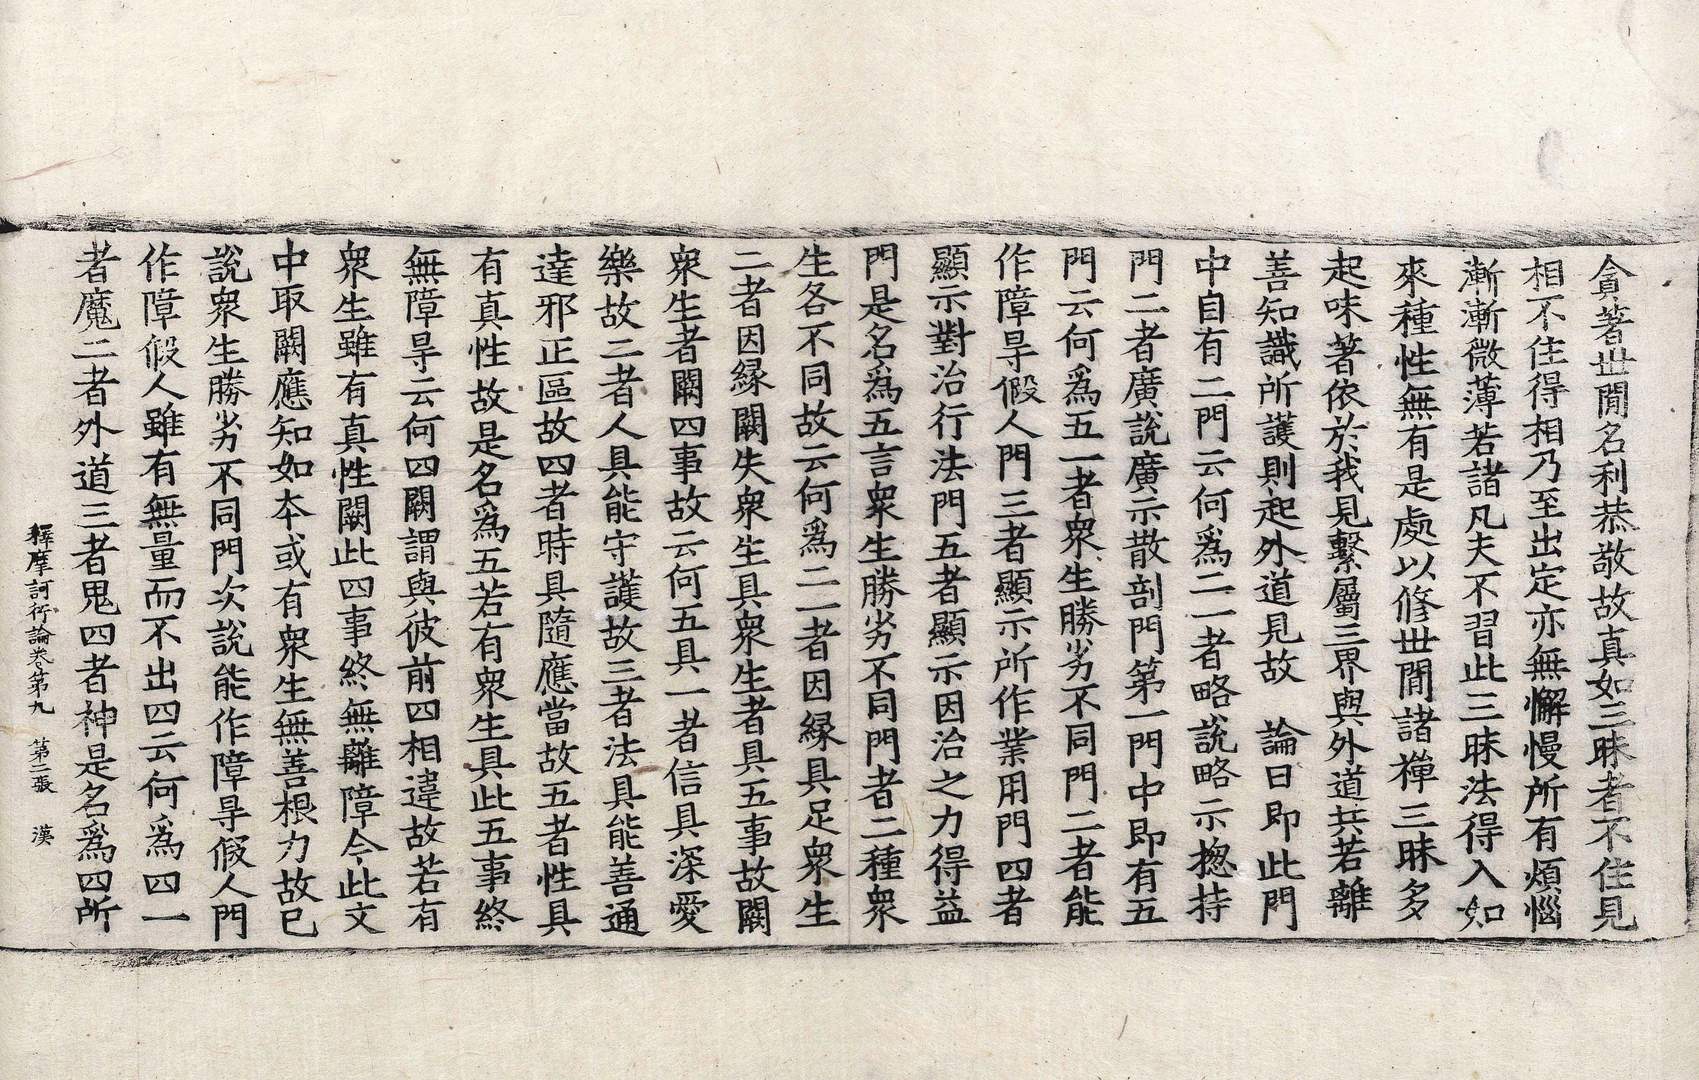 貪著世閒名利恭敬故真如三昧者不住見
相不住得相乃至出定亦無懈慢所有煩惱
漸漸微薄若諸凡夫不習此三昧法得入如
來種性無有是處以修世閒諸禪三昧多
起味著依於我見繫屬三界與外道共若離
善知識所護則起外道見故　論曰即此門
中自有二門云何爲二一者略說略示揔持
門二者廣說廣示散剖門第一門中即有五
門云何爲五一者衆生勝劣不同門二者能
作障㝵假人門三者顯示所作業用門四者
顯示對治行法門五者顯示因治之力得益
門是名爲五言衆生勝劣不同門者二種衆
生各不同故云何爲二一者因緣具足衆生
二者因緣闕失衆生具衆生者具五事故闕
衆生者闕四事故云何五具一者信具深愛
樂故二者人具能守護故三者法具能善通
達邪正區故四者時具隨應當故五者性具
有真性故是名爲五若有衆生具此五事終
無障㝵云何四闕謂與彼前四相違故若有
衆生雖有真性闕此四事終無離障今此文
中取闕應知如本或有衆生無善根力故已
說衆生勝劣不同門次說能作障㝵假人門
作障假人雖有無量而不出四云何爲四一
者魔二者外道三者鬼四者神是名爲四所
釋摩訶衍論卷第九　第二張　漢